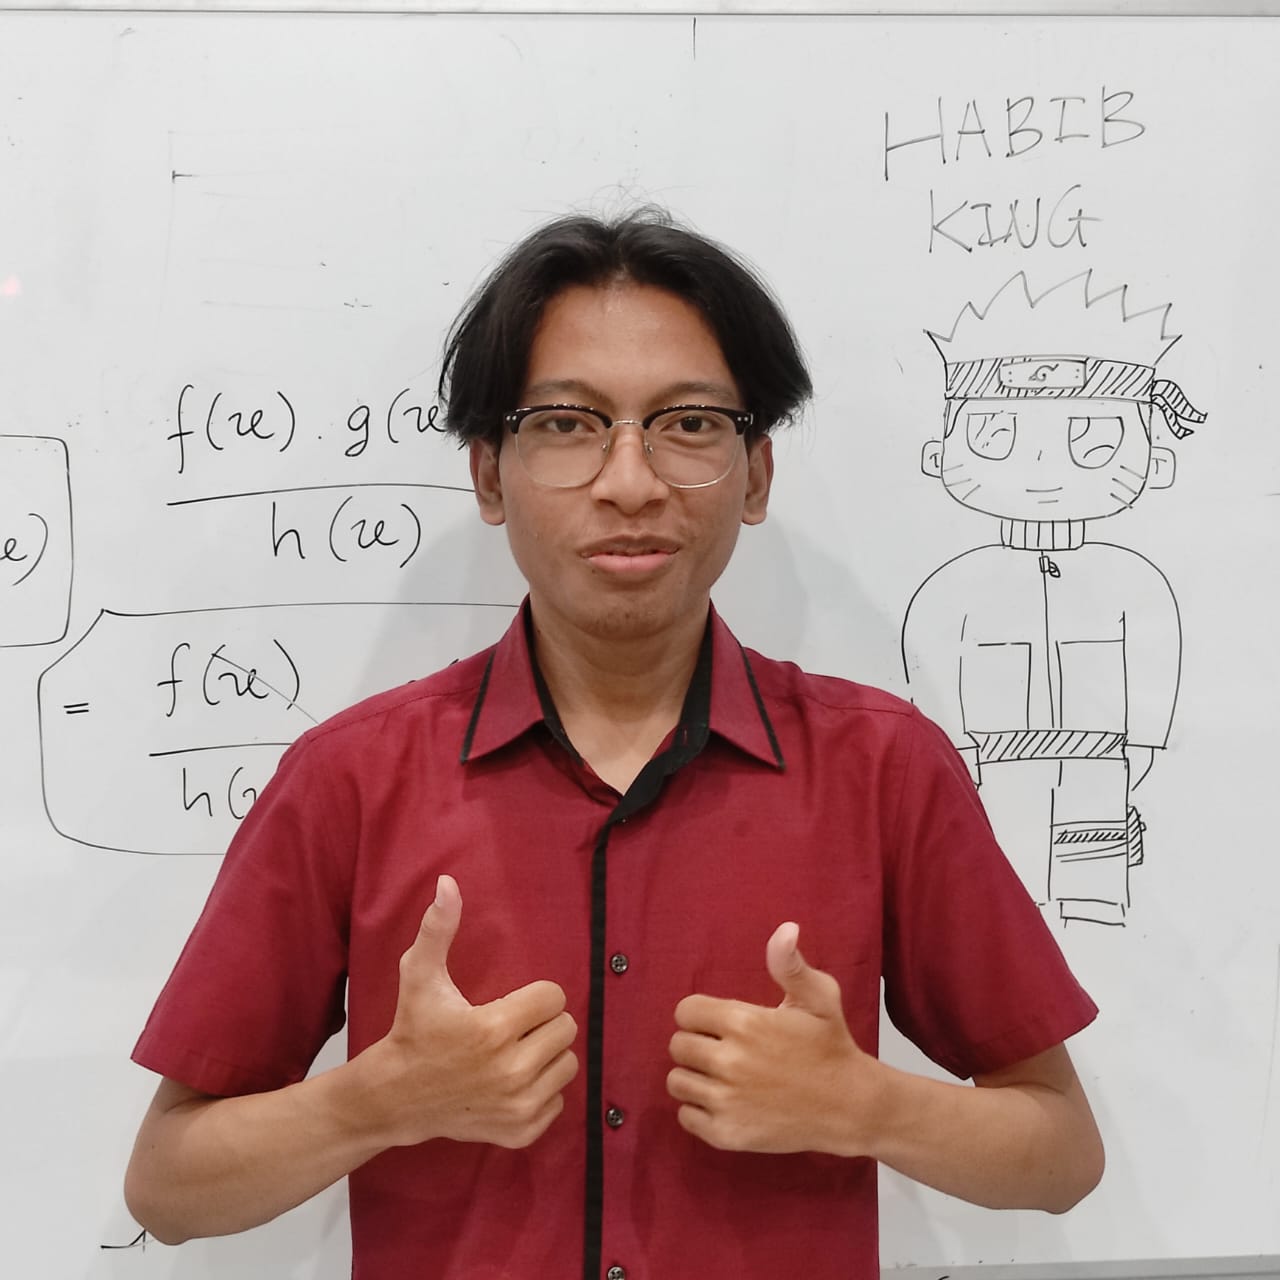 HABIB
KING
f(x) . g(x
h(x)
x)
= f(x)
h(x